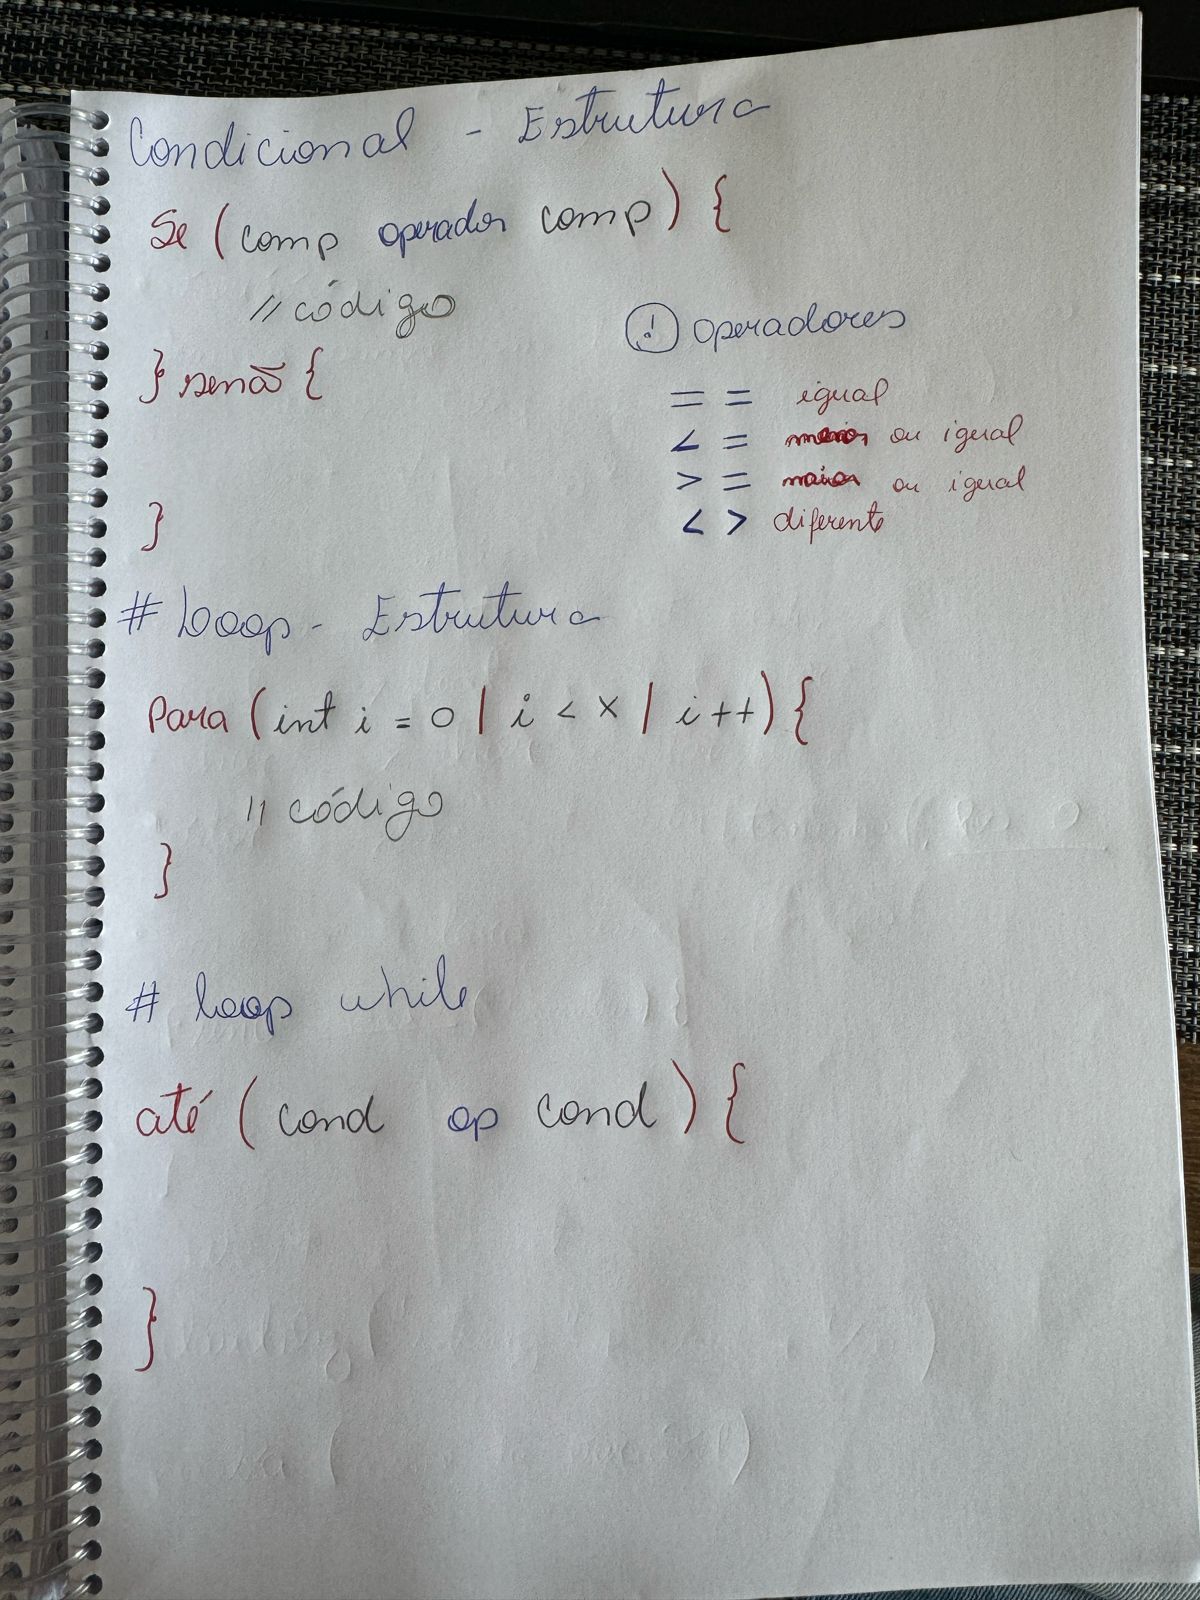 Condicional - Estrutura
Se (comp operador comp) {
// código
} senão {
}
! operadores
== igual
<= menor ou igual
>= maior ou igual
<> diferente
# Loop - Estrutura
Para (int i = 0 | i < x | i++) {
// código
}
# loop while
até (cond op cond) {
}